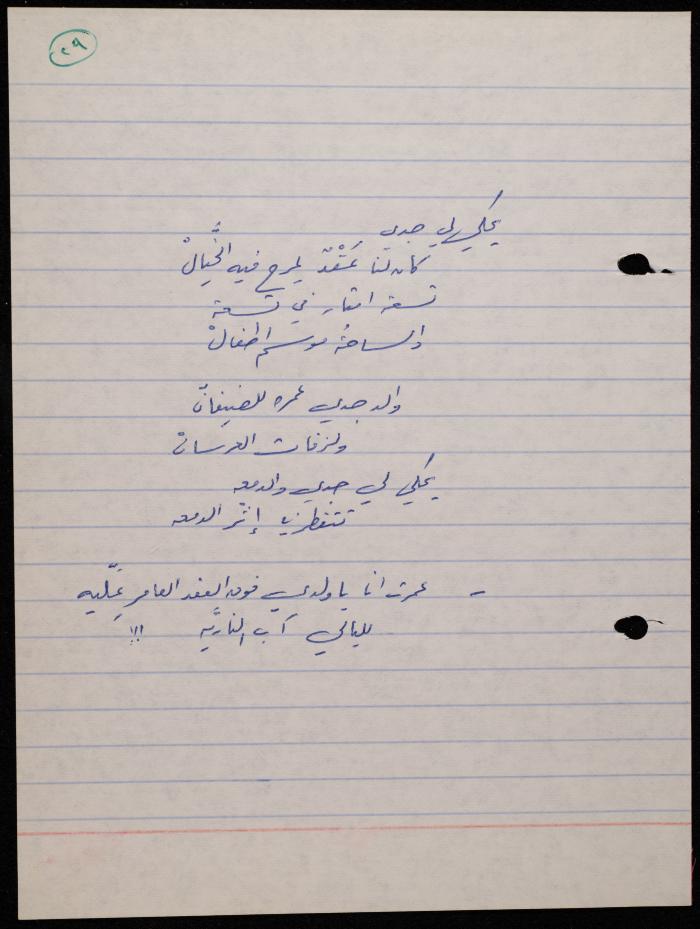 ٢٩
يحكي لي جدي
كان لنا عَقْدٌ يمرح فيه الخَّيالْ
تسعة امتار في تسعة
والساحةُ موسم اطفالْ
والد جدي عمره للضيفانْ
ولزفات العرسانْ
يحكي لي جدي والدمعه
تتقطر يا إثر الدمعه
- عمرت انا يا ولدي فوق العقد العامر عِلّيه
لليالي آب الناريَّه !!!